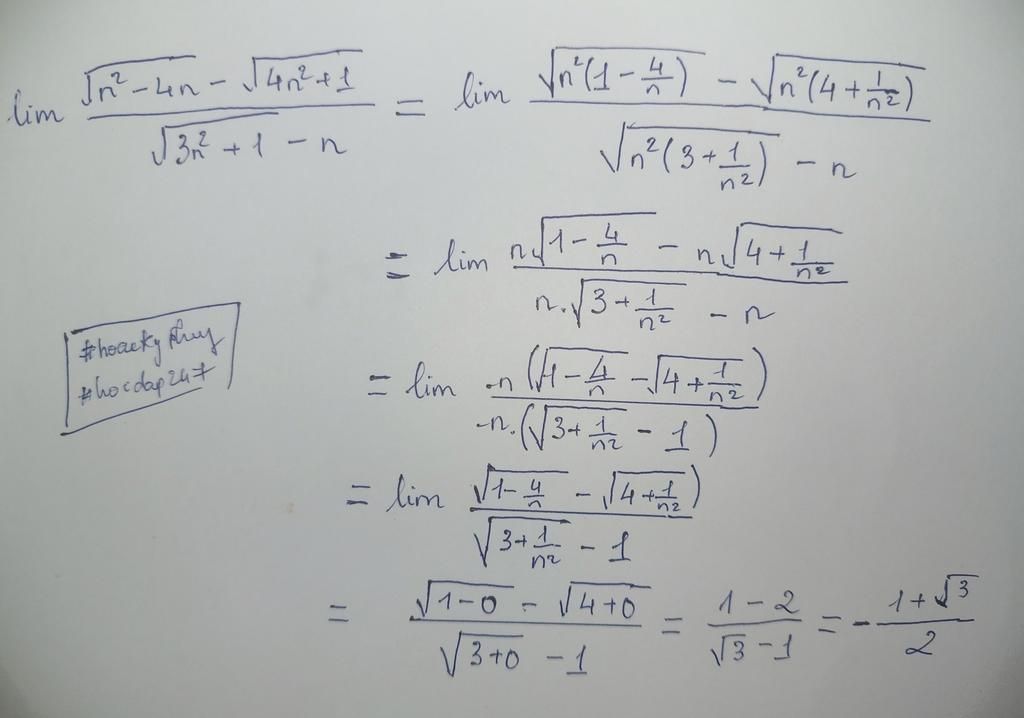 lim (√(n² - 4n) - √(4n² + 1)) / (√(3n² + 1) - n) = lim (√(n²(1 - 4/n)) - √(n²(4 + 1/n²))) / (√(n²(3 + 1/n²)) - n)
= lim (n√(1 - 4/n) - n√(4 + 1/n²)) / (n.√(3 + 1/n²) - n)
= lim -n(√(1 - 4/n) - √(4 + 1/n²)) / -n.(√(3 + 1/n²) - 1)
= lim (√(1 - 4/n) - √(4 + 1/n²)) / (√(3 + 1/n²) - 1)
= (√(1 - 0) - √(4 + 0)) / (√(3 + 0) - 1) = (1 - 2) / (√3 - 1) = - (1 + √3) / 2